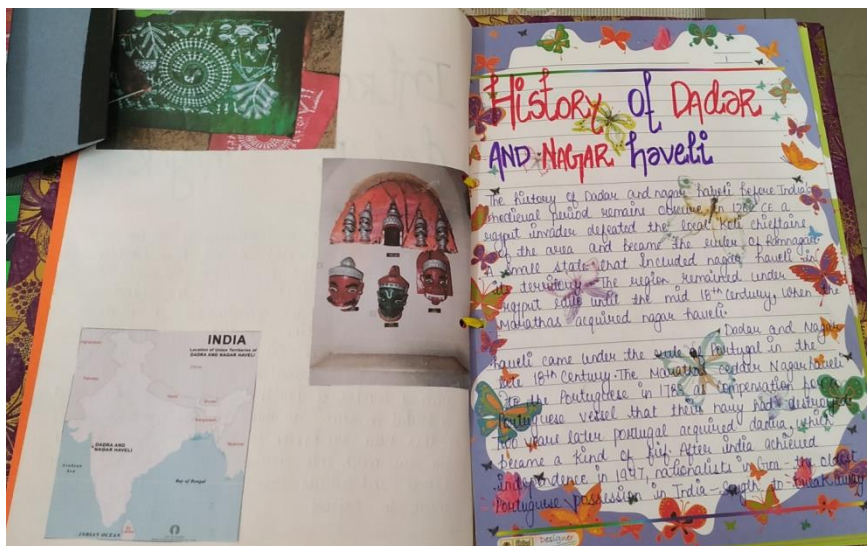 INDIA
Location of Union Territories of
DADRA AND NAGAR HAVELI
DADRA AND
NAGAR HAVELI
Bay of Bengal
INDIAN OCEAN
1
History of Dadar
AND NAGAR haveli
The history of Dadar and nagar haveli before India's
medieval period remains obscure. In 1262 CE a
rajput invader defeated the local Koli chieftains
of the area and became the ruler of Ramnagar
A small state that included nagar haveli in
its territory. The region remained under
rajput until the mid 18th century, when the
Marathas acquired nagar haveli.
Dadar and Nagar
haveli came under the rule of Portugal in the
late 18th century. The Marathas Nagar haveli
to the Portuguese in as compensation for a
Portuguese vessel that their navy had destroyed
two years later portugal acquired which
became a kind of fief. After india achieved
independence in 1947, nationalists in Goa - the oldest
Portuguese possession in India - to break away
Designer